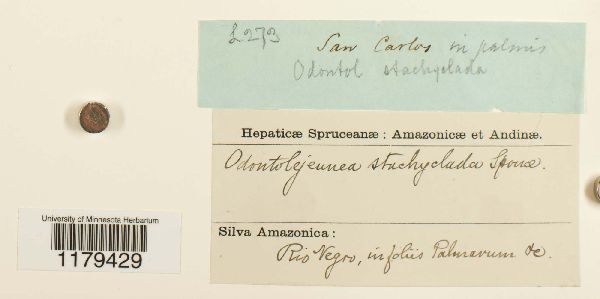 L273 San Carlos in palmis
Odontol stachyclada
Hepaticæ Spruceanæ: Amazonicæ et Andinæ.
Odontolejeunea stachyclada Spruce.
Silva Amazonica:
Rio Negro, in foliis Palmarum &c.
University of Minnesota Herbarium
1179429